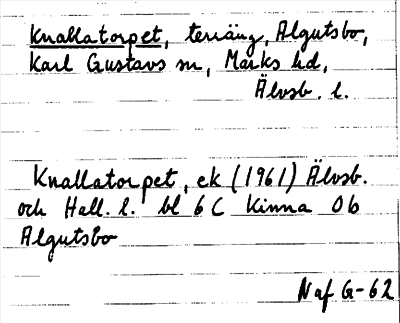 Knallatorpet, terräng, Algutsbo,
Karl Gustavs sn, Marks hd,
Älvsb. l.
Knallatorpet, ek (1961) Älvsb.
och Hall. l. bl 6 C Kinna Ob
Algutsbo
Naf G-62